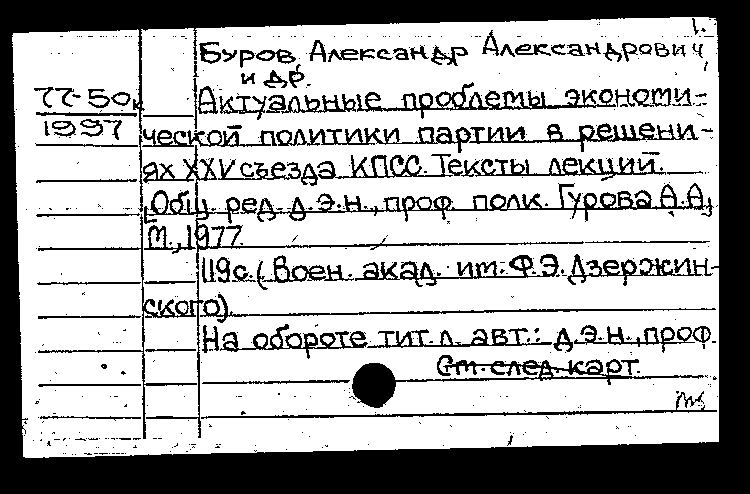 1.
Буров Александр Александрович
и др.
77-50к
1997
Актуальные проблемы экономи-
ческой политики партии в решени-
ях XXV съезда КПСС. Тексты лекций.
[Общ. ред. д.э.н., проф. полк. Гурова А.А.]
М., 1977.
119с. (Воен. акад. им. Ф.Э.Дзержин-
ского).
На обороте тит.л. авт.: д.э.н., проф.
См. след. карт.